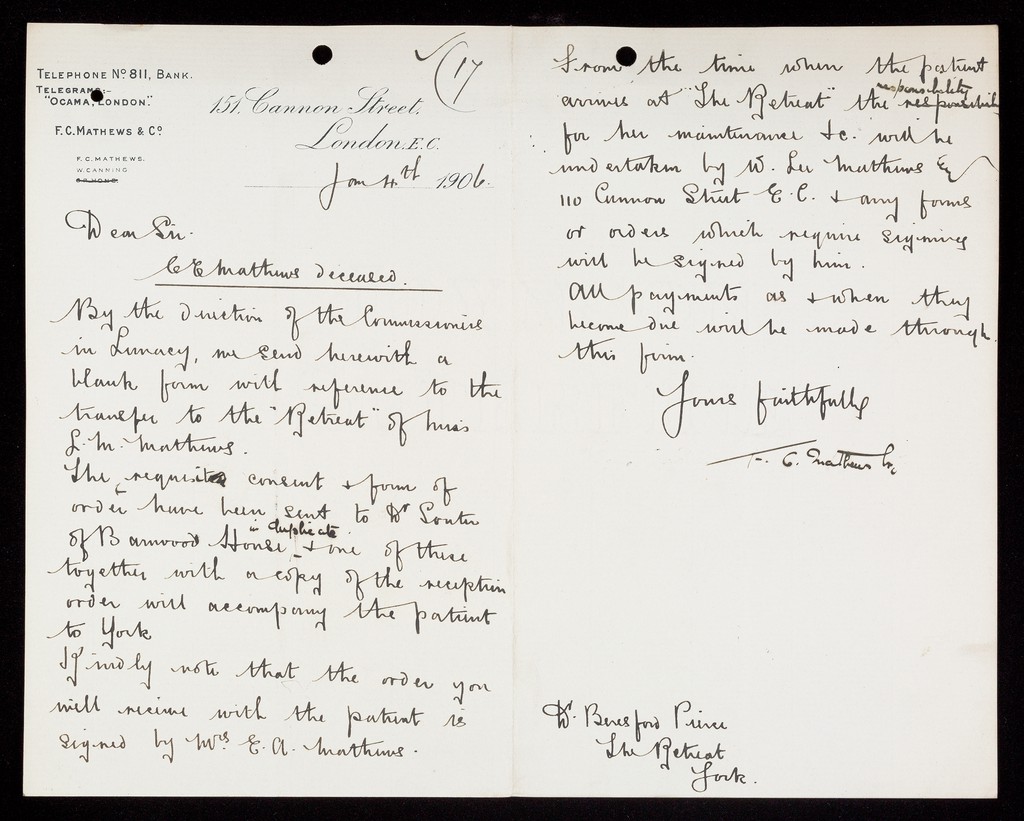 TELEPHONE Nº 811, BANK.
TELEGRAMS:-
"OCAMA, LONDON."
F.C. MATHEWS & Cº
F. C. MATHEWS.
W. CANNING
17
151, Cannon Street,
London, E.C.
Jan 4th 1906.
Dear Sir.
C E Mathews Deceased.
By the direction of the Commissioners
in Lunacy, we send herewith a
blank form with reference to the
transfer to the "Retreat" of Miss
L. M. Mathews.
The requisite consent & form of
order have been sent to Dr Soutar
in duplicate
of Barnwood House & one of these
together with a copy of the reception
order will accompany the patient
to York
Kindly note that the order you
will receive with the patient is
signed by Mrs E. A. Mathews.
From the time when the patient
responsibility
arrives at "The Retreat" the responsibility
for her maintenance &c. will be
undertaken by W. Lee Mathews Esq
110 Cannon Street E.C. & any forms
or orders which require signing
will be signed by him.
All payments as & when they
become due will be made through
this firm.
Yours faithfully
F. C. Mathews & Co
Dr. Beresford Pierce
The Retreat
York.